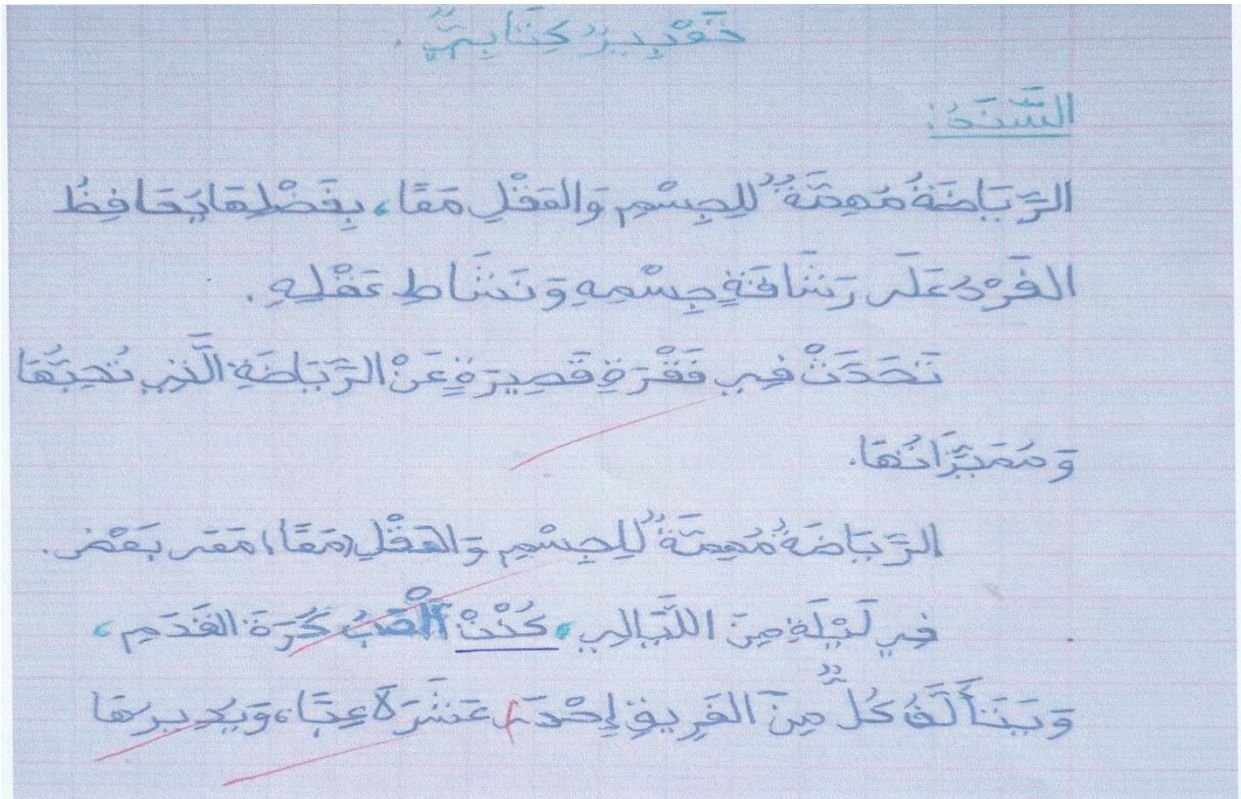 تَعْبِيرٌ كِتَابِيٌّ .
السَّنَدُ:
الرِّيَاضَةُ مُهِمَّةٌ لِلْجِسْمِ وَالعَقْلِ مَعًا، بِفَضْلِهَا يُحَافِظُ
الفَرْدُ عَلَى رَشَاقَةِ جِسْمِهِ وَنَشَاطِ عَقْلِهِ .
تَحَدَّثْ فِي فَقْرَةٍ قَصِيرَةٍ عَنْ الرِّيَاضَةِ الَّتِي تُحِبُّهَا
وَمُمَيِّزَاتُهَا.
الرِّيَاضَةُ مُهِمَّةٌ لِلْجِسْمِ وَالعَقْلِ (مَعًا) مَعَى بَعْض.
فِي لَيْلَةٍ مِنَ اللَّيَالِي، كُنْتُ أَلْعَبُ كُرَةَ القَدَمِ،
وَيَتَأَلَّفُ كُلٌّ مِنَ الفَرِيقِ إِحْدَى عَشَرَ لَاعِبًا، وَيُدِيرُهَا